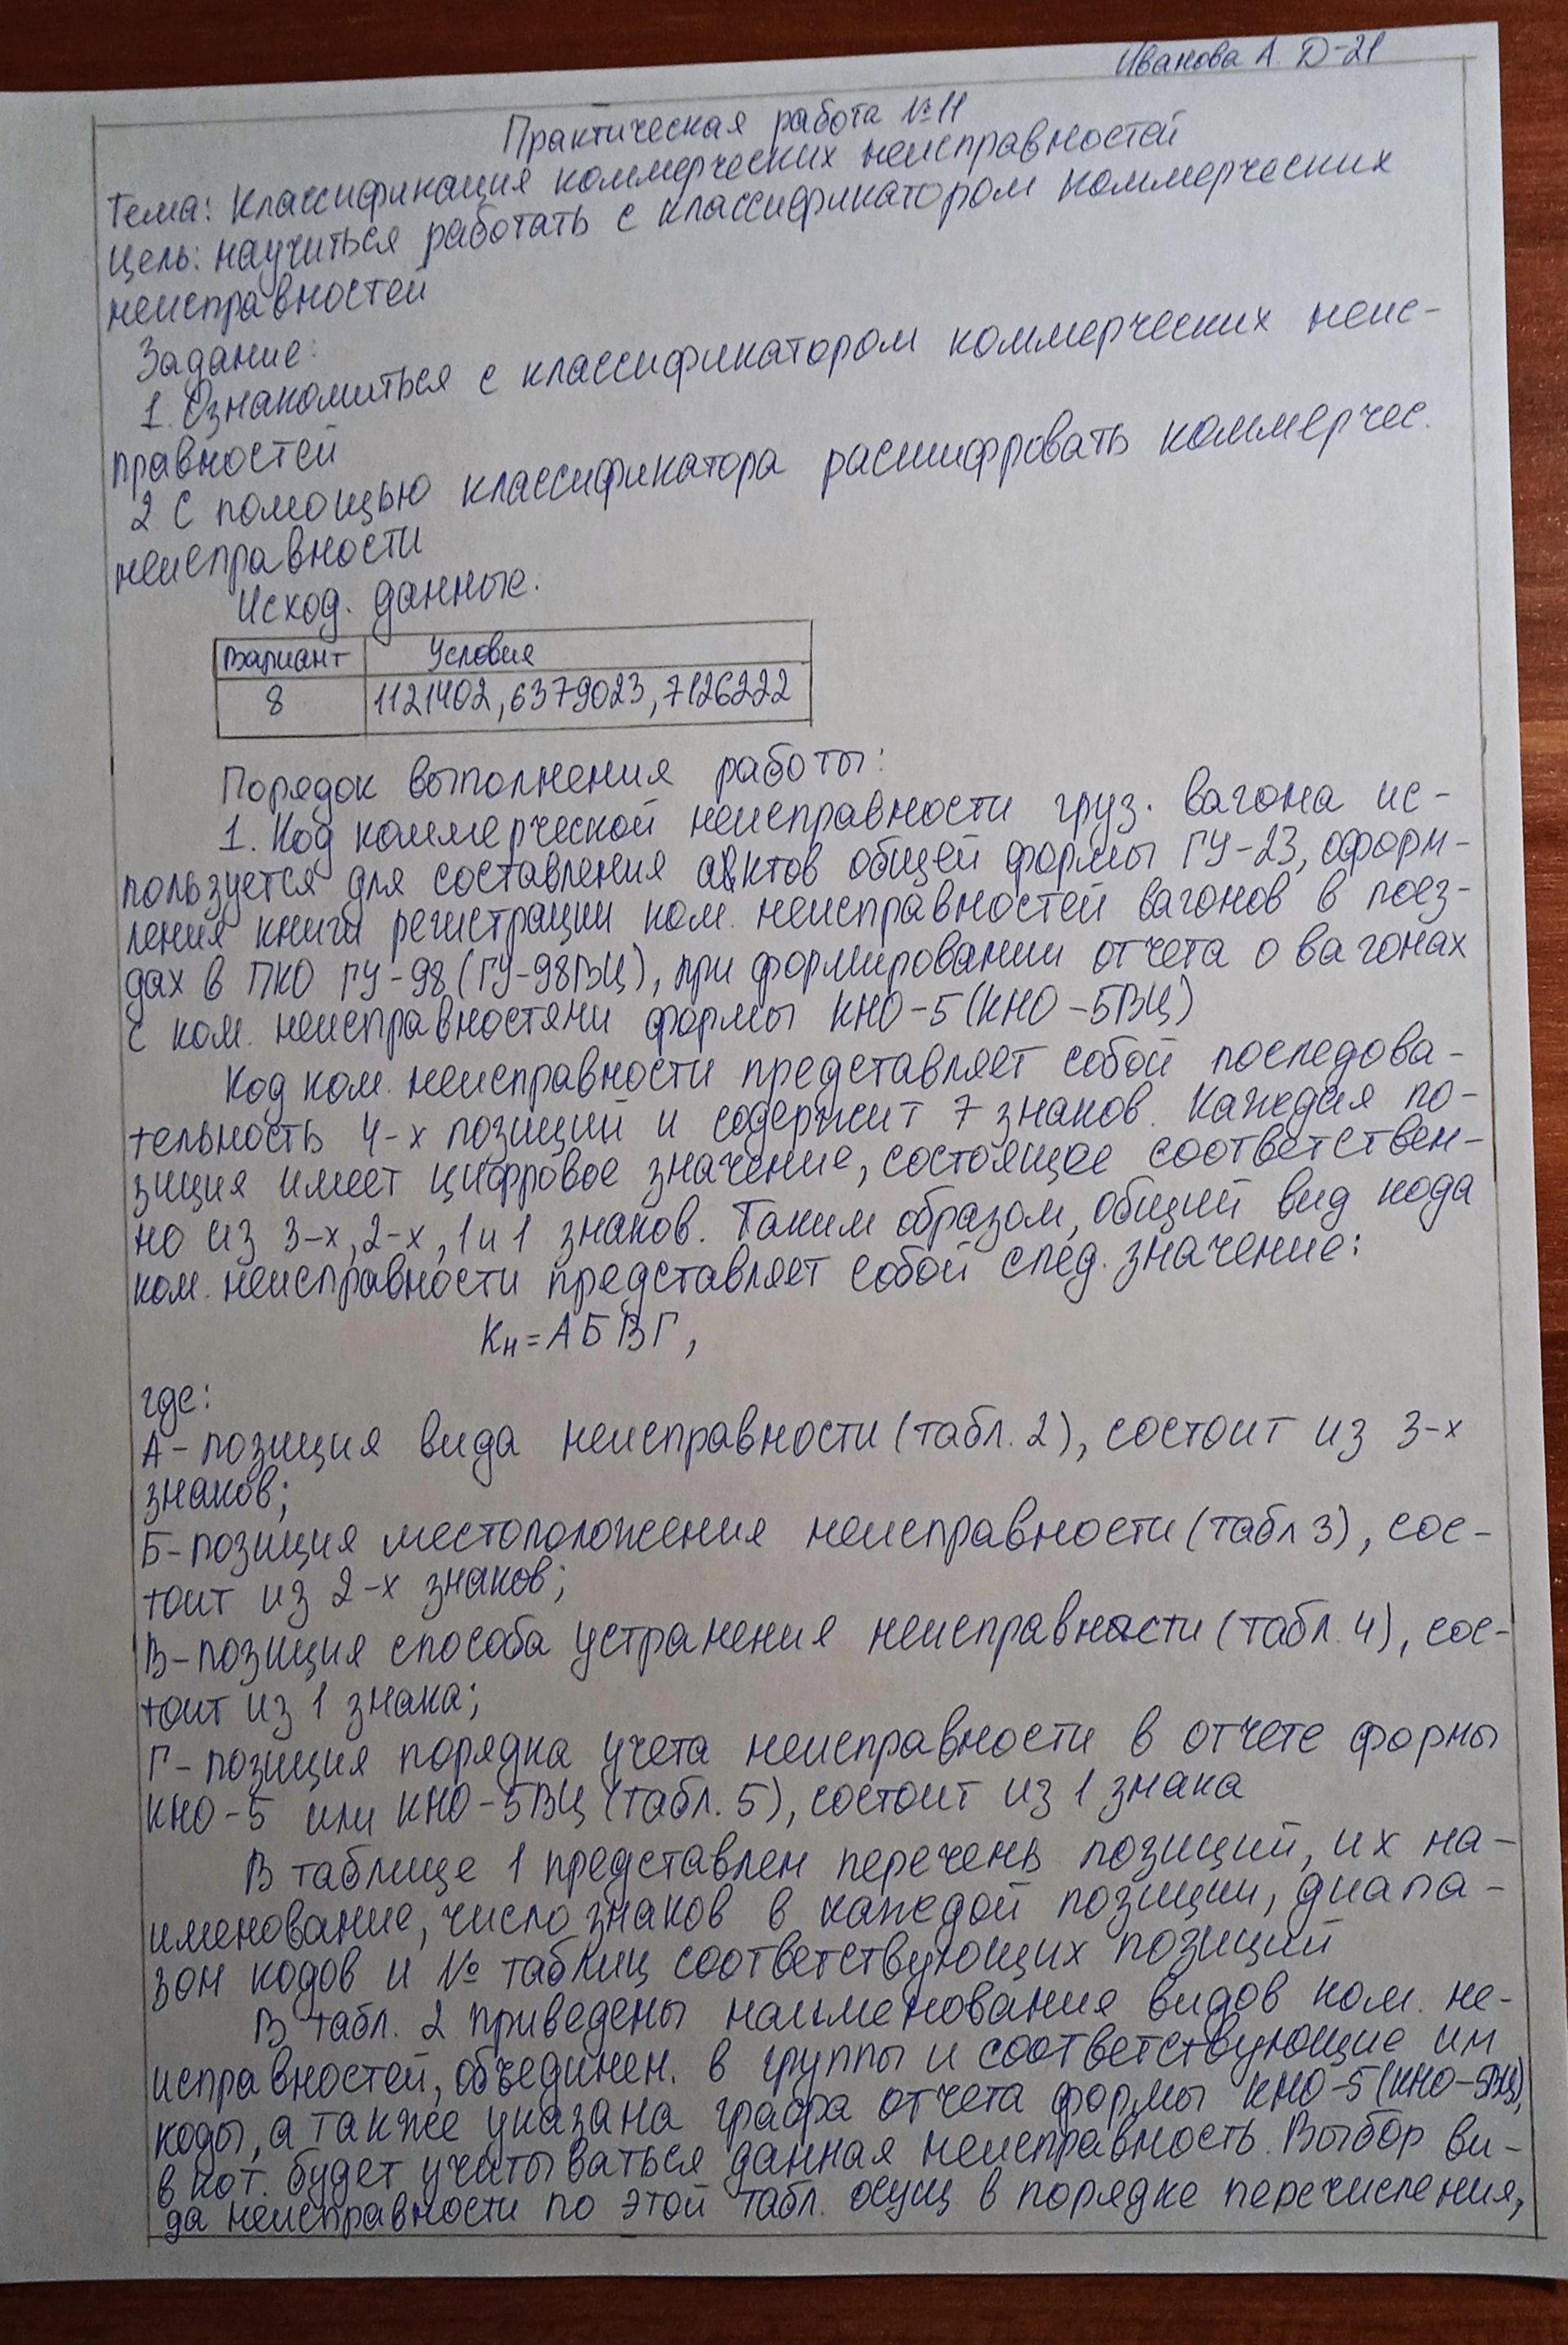 Иванова А. Д-21
Практическая работа №11
Тема: Классификация коммерческих неисправностей
Цель: научиться работать с классификатором коммерческих
неисправностей
Задание:
1. Ознакомиться с классификатором коммерческих неис-
правностей
2 С помощью классификатора расшифровать коммерчес.
неисправности
Исход. данные.
Вариант Условия
8 1121402, 6379023, 7126222
Порядок выполнения работы:
1. Код коммерческой неисправности груз. вагона ис-
пользуется для составления актов общей формы ГУ-23, оформ-
ления книги регистрации ком. неисправностей вагонов в поез-
дах в ПКО ГУ-98 (ГУ-98ВЦ), при формировании отчета о вагонах
с ком. неисправностями формы КНО-5 (КНО-5ВЦ)
Код ком. неисправности представляет собой последова-
тельность 4-х позиций и содержит 7 знаков. Каждая по-
зиция имеет цифровое значение, состоящее соответствен-
но из 3-х, 2-х, 1 и 1 знаков. Таким образом, общий вид кода
ком. неисправности представляет собой след. значение:
Кн = АБВГ,
где:
А - позиция вида неисправности (табл. 2), состоит из 3-х
знаков;
Б - позиция местоположения неисправности (табл 3), сос-
тоит из 2-х знаков;
В - позиция способа устранения неисправности (табл. 4), сос-
тоит из 1 знака;
Г - позиция порядка учета неисправности в отчете формы
КНО-5 или КНО-5ВЦ (табл. 5), состоит из 1 знака
В таблице 1 представлен перечень позиций, их на-
именование, число знаков в каждой позиции, диапа-
зон кодов и № таблиц соответствующих позиций
В табл. 2 приведены наименования видов ком. не-
исправностей, объединен. в группы и соответствующие им
коды, а также указана графа отчета формы КНО-5 (КНО-5ВЦ),
в кот. будет учитываться данная неисправность. Выбор ви-
да неисправности по этой табл. осущ в порядке перечисления,